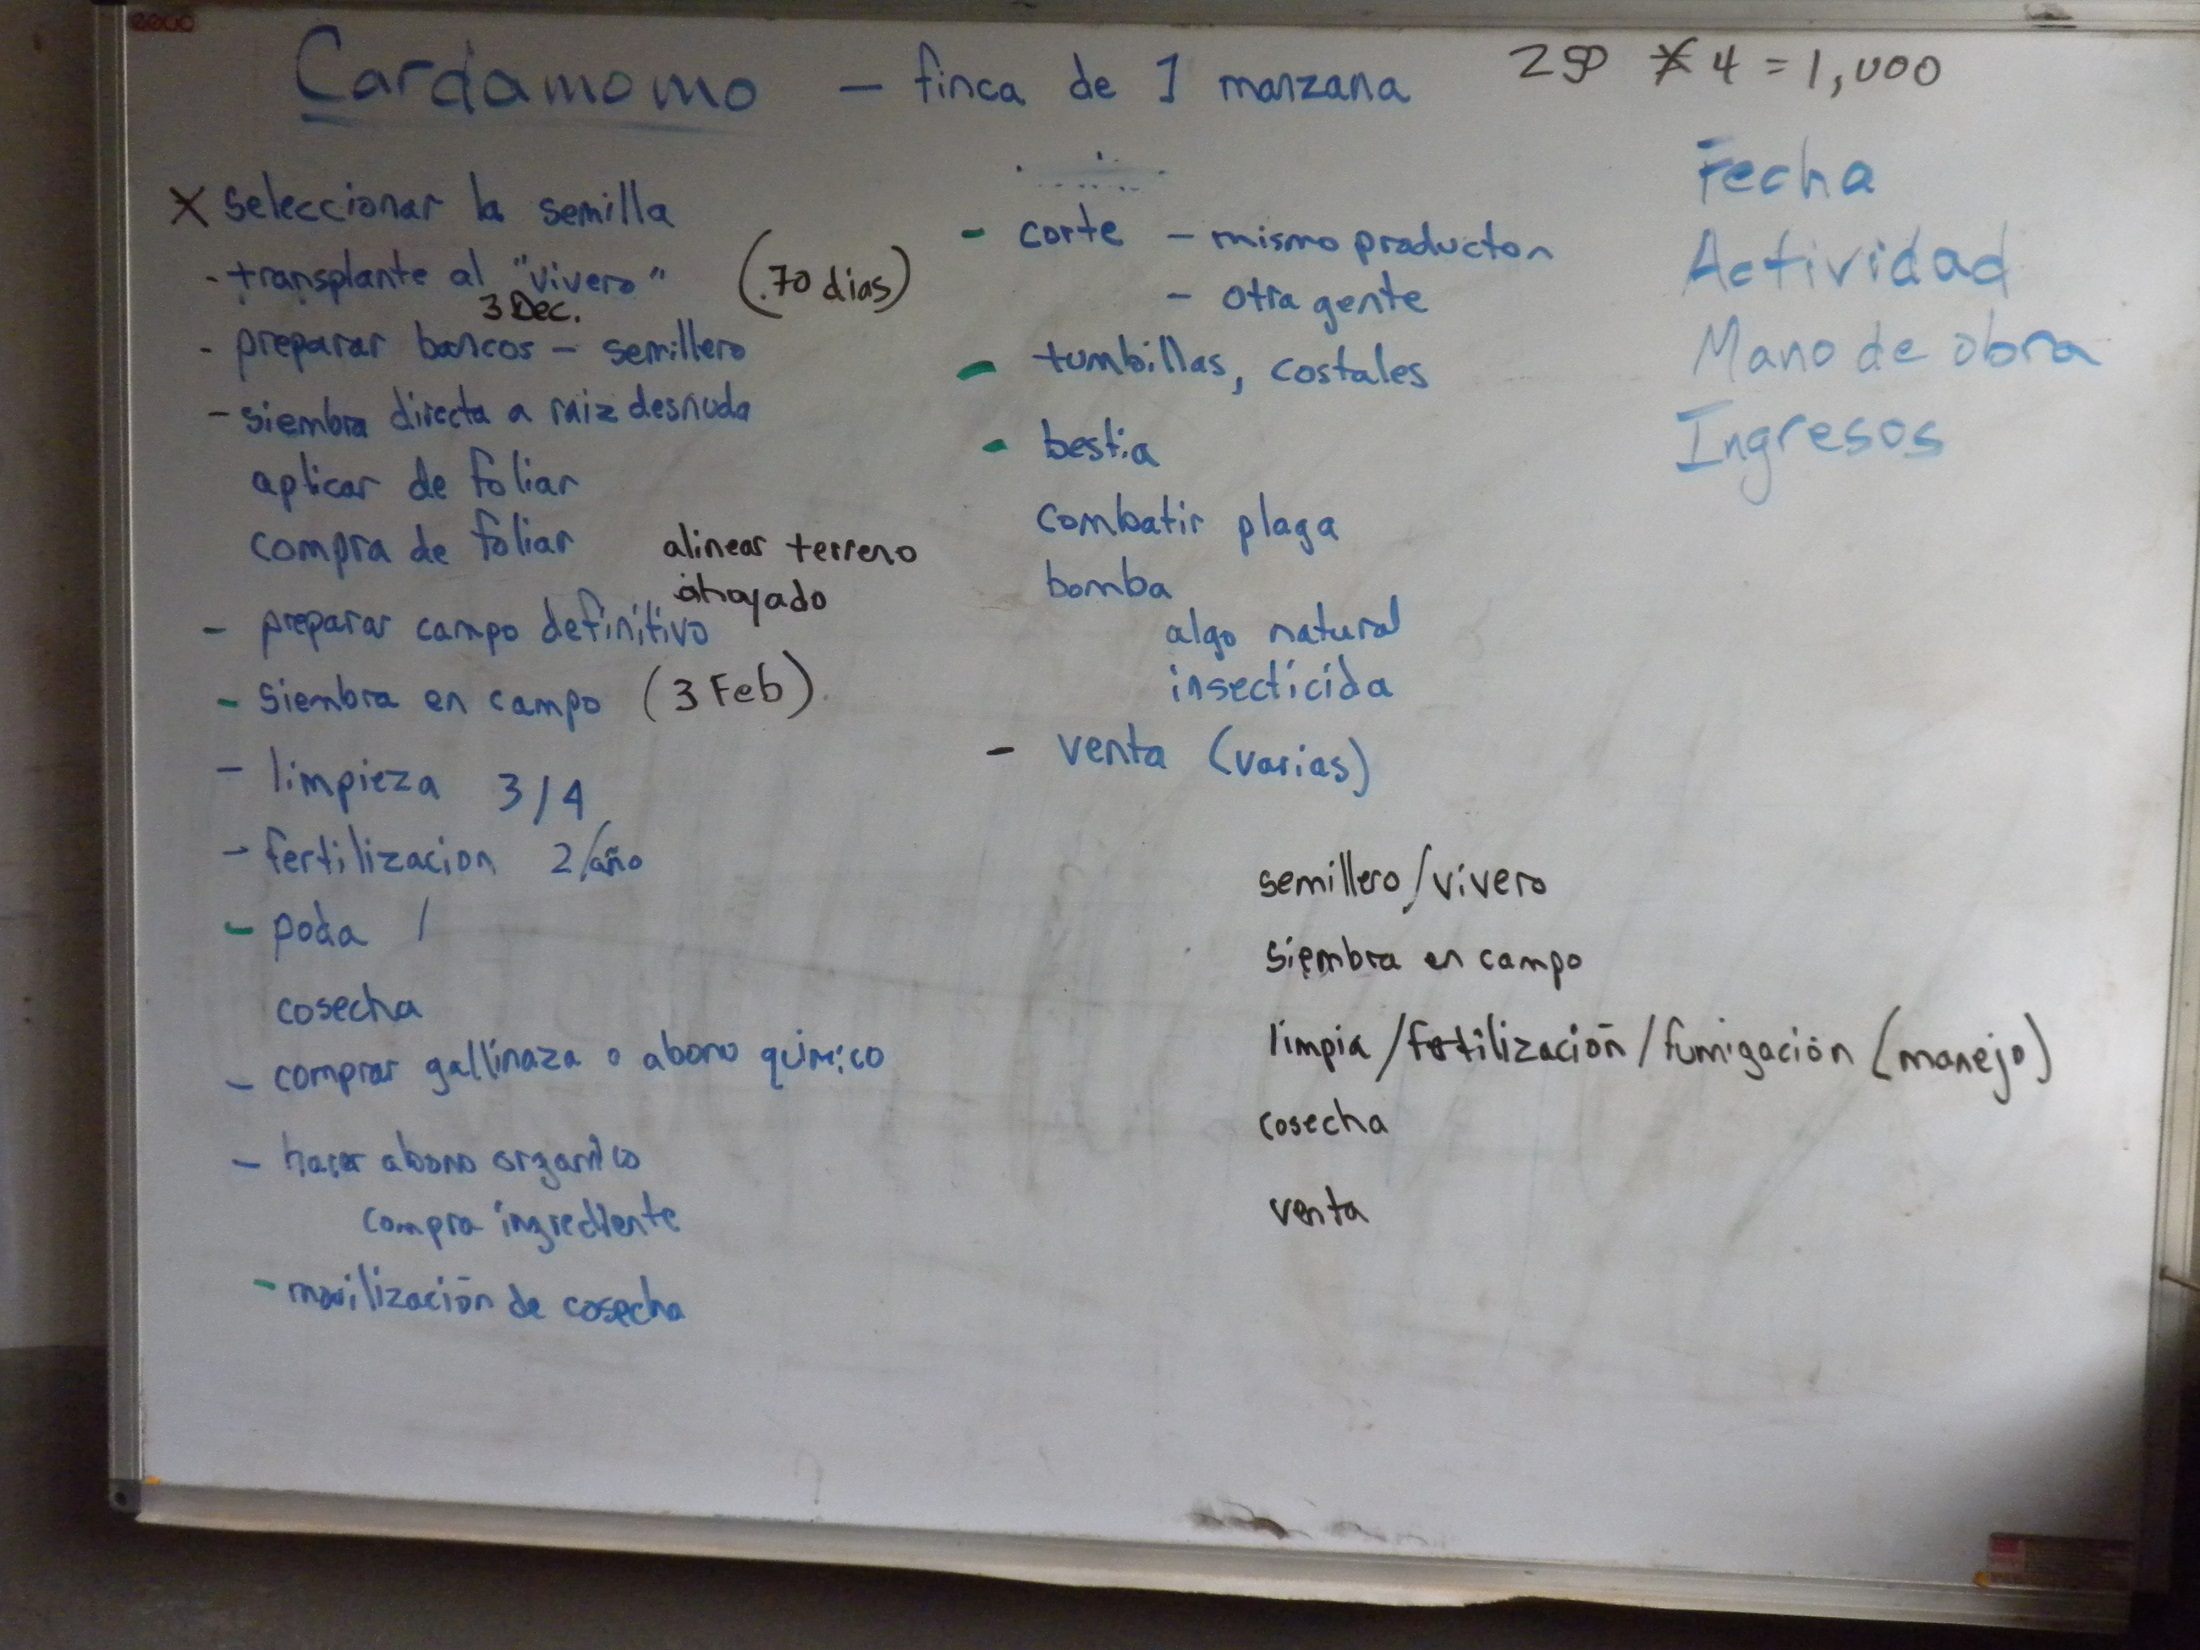 Cardamomo – finca de 1 manzana
250 * 4 = 1,000
X seleccionar la semilla
- transplante al "vivero" (70 dias)
3 Dec.
- preparar bancos – semillero
- siembra directa a raiz desnuda
aplicar de foliar
compra de foliar
alinear terreno
ahoyado
- preparar campo definitivo
- siembra en campo (3 Feb)
- limpieza 3/4
- fertilizacion 2/año
- poda 1
cosecha
- comprar gallinaza o abono quimico
- hacer abono organico
compra ingrediente
- movilización de cosecha
- corte – mismo productor
- otra gente
- tumbillas, costales
- bestia
combatir plaga
bomba
algo natural
insecticida
- venta (varias)
Fecha
Actividad
Mano de obra
Ingresos
semillero/vivero
siembra en campo
limpia/fertilización/fumigación (manejo)
cosecha
venta